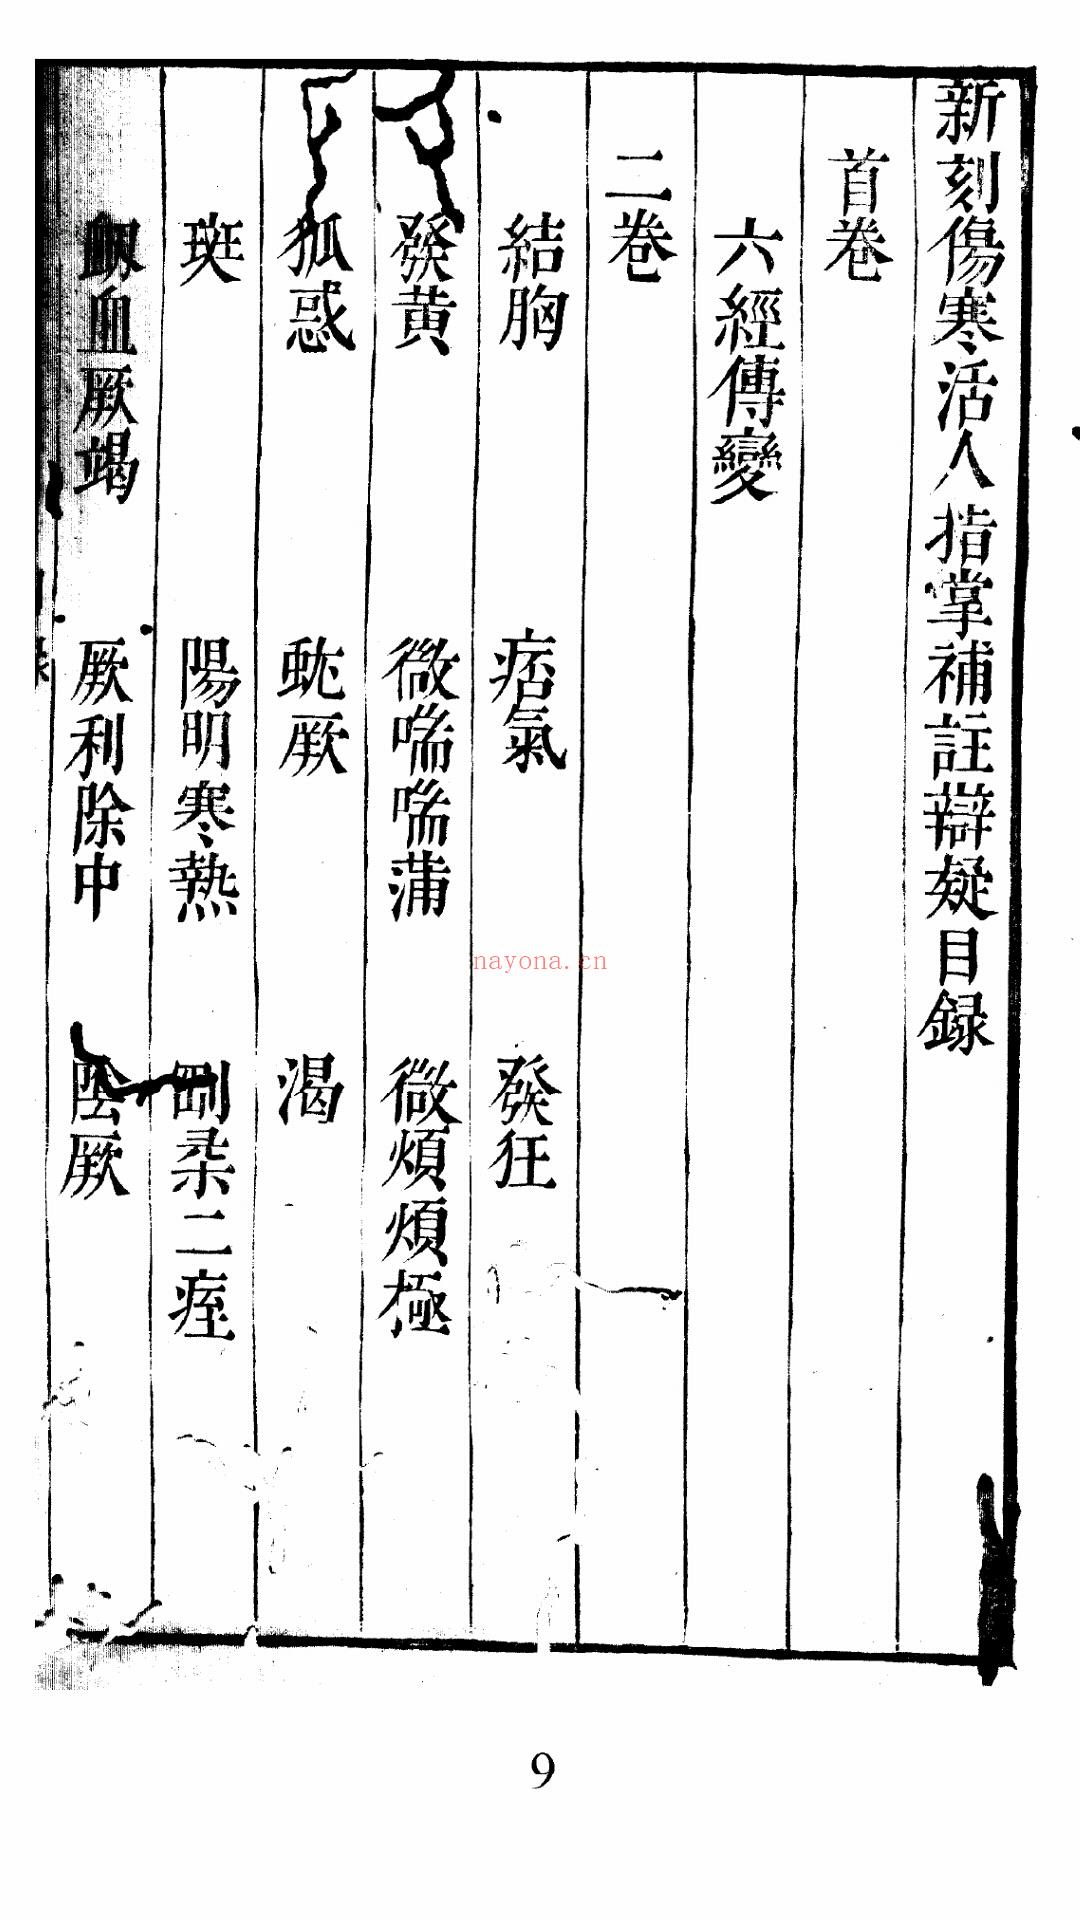 新刻傷寒活人指掌補註辯疑目録
首卷
六經傳變
二卷
結胸 痞氣 發狂
發黄 微喘喘蒲 微煩煩極
狐惑 蚘厥 渴
斑 陽明寒熱 剛柔二痓
衂血厥竭 厥利除中 陰厥
nayona.cn
9